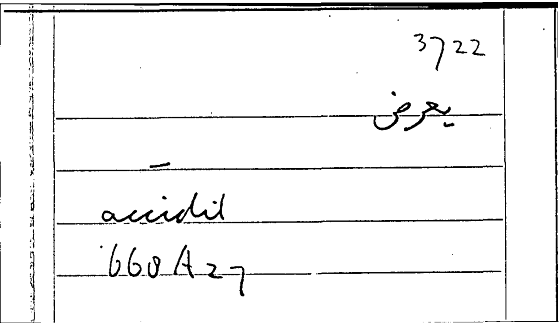 3722
يعرض
accidit
668 A 27